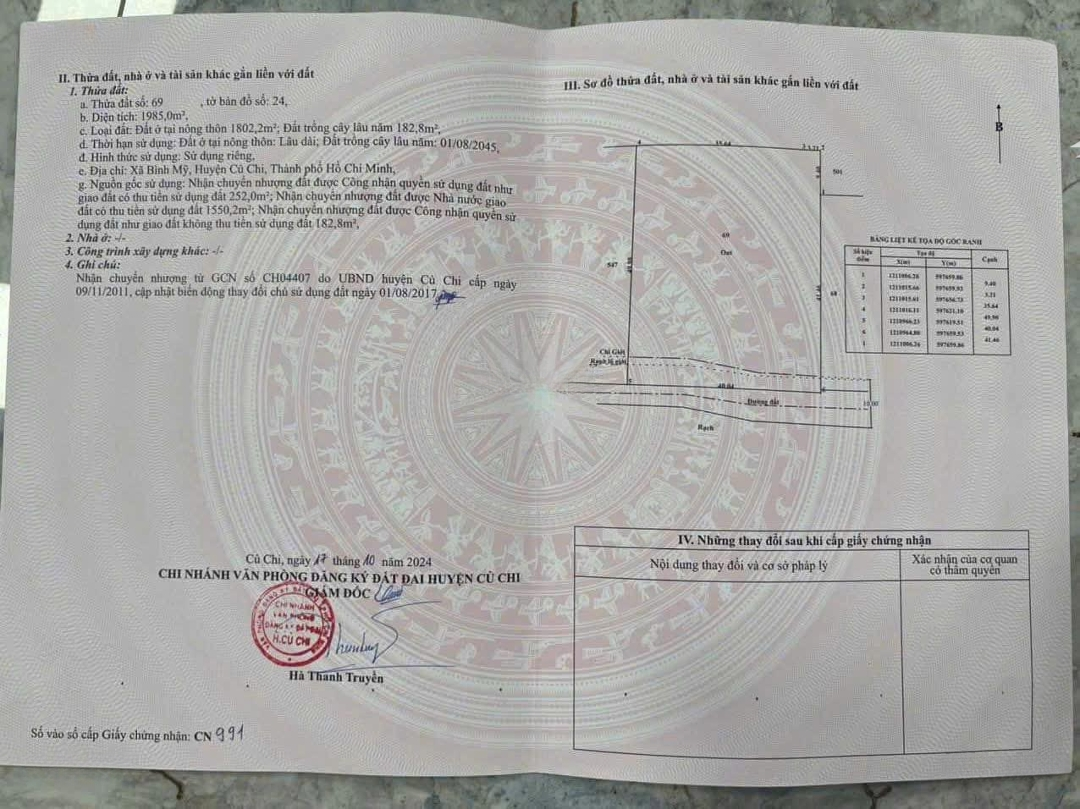 II. Thửa đất, nhà ở và tài sản khác gắn liền với đất
1. Thửa đất:
a. Thửa đất số: 69 , tờ bản đồ số: 24,
b. Diện tích: 1985,0m²,
c. Loại đất: Đất ở tại nông thôn 1802,2m²; Đất trồng cây lâu năm 182,8m²,
d. Thời hạn sử dụng: Đất ở tại nông thôn: Lâu dài; Đất trồng cây lâu năm: 01/08/2045,
đ. Hình thức sử dụng: Sử dụng riêng,
e. Địa chỉ: Xã Bình Mỹ, Huyện Củ Chi, Thành phố Hồ Chí Minh,
g. Nguồn gốc sử dụng: Nhận chuyển nhượng đất được Công nhận quyền sử dụng đất như
giao đất có thu tiền sử dụng đất 252,0m²; Nhận chuyển nhượng đất được Nhà nước giao
đất có thu tiền sử dụng đất 1550,2m²; Nhận chuyển nhượng đất được Công nhận quyền sử
dụng đất như giao đất không thu tiền sử dụng đất 182,8m²,
2. Nhà ở: -/-
3. Công trình xây dựng khác: -/-
4. Ghi chú:
Nhận chuyển nhượng từ GCN số CH04407 do UBND huyện Củ Chi cấp ngày
09/11/2011, cập nhật biến động thay đổi chủ sử dụng đất ngày 01/08/2017
Củ Chi, ngày 17 tháng 10 năm 2024
CHI NHÁNH VĂN PHÒNG ĐĂNG KÝ ĐẤT ĐAI HUYỆN CỦ CHI
GIÁM ĐỐC
CHI NHÁNH
VĂN PHÒNG
ĐĂNG KÝ ĐẤT ĐAI
H.CỦ CHI
Hà Thanh Truyền
Số vào sổ cấp Giấy chứng nhận: CN 991
III. Sơ đồ thửa đất, nhà ở và tài sản khác gắn liền với đất
B
4
35.64
3.21
501
69
Ont
547
68
41.46
Chỉ Giới
Rạch lộ giới
5
40.04
6
Đường đất
10.00
Rạch
BẢNG LIỆT KÊ TỌA ĐỘ GÓC RANH
Số hiệu điểm
Tọa độ
X(m)
Y(m)
Cạnh
1
2
3
4
5
6
1
597659.86
9.40
3.21
35.64
49.90
40.04
41.46
IV. Những thay đổi sau khi cấp giấy chứng nhận
Nội dung thay đổi và cơ sở pháp lý
Xác nhận của cơ quan
có thẩm quyền